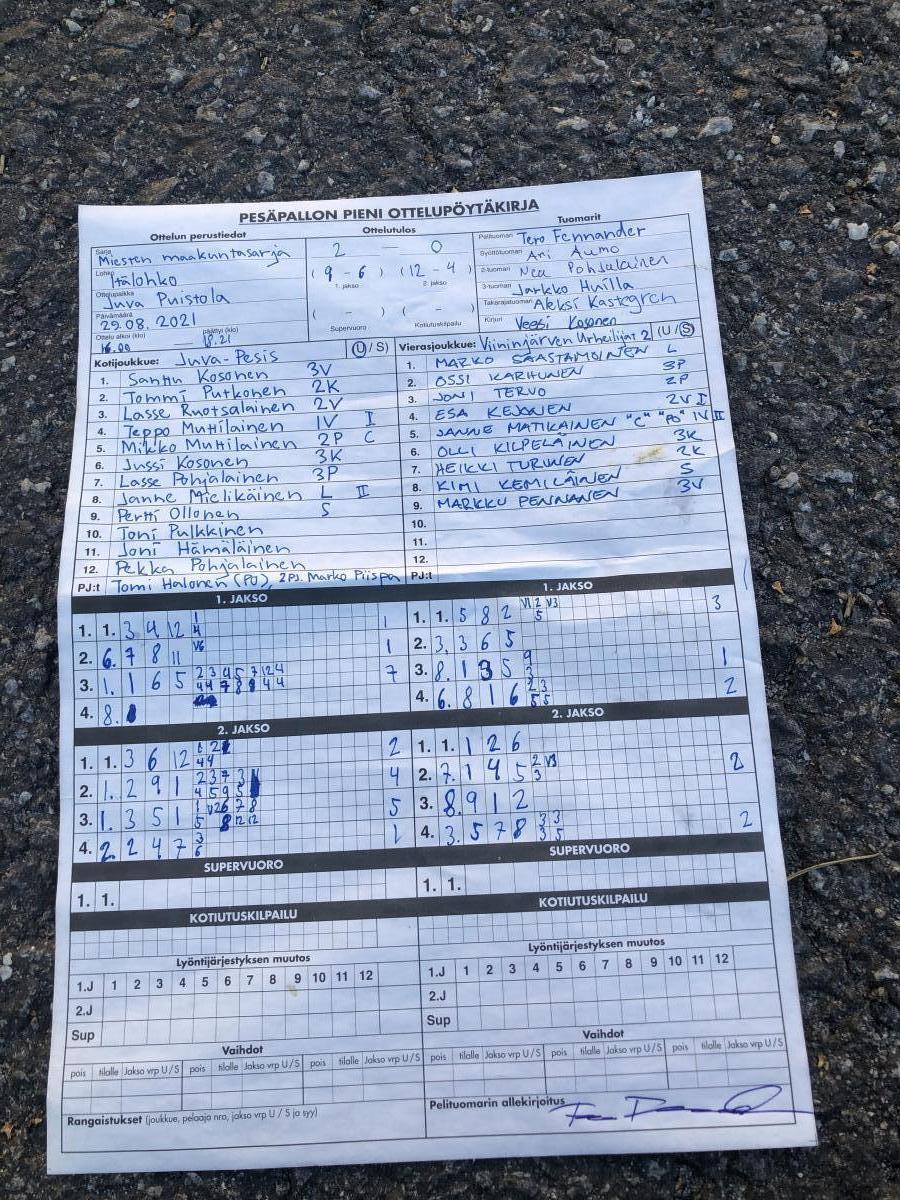 PESÄPALLON PIENI OTTELUPÖYTÄKIRJA
Ottelun perustiedot
Sarja Miesten maakuntasarja
Lohko Itälohko
Ottelupaikka Juva Puistola
Päivämäärä 29.08.2021
Ottelu alkoi (klo) 16.00 — päättyi (klo) 18.21
Ottelutulos
2 — 0
( 9 - 6 ) ( 12 - 4 )
1. jakso 2. jakso
( - ) ( - )
Supervuoro Kotiutuskilpailu
Tuomarit
Pelituomari Tero Fennander
Syöttötuomari Ari Aumo
2-tuomari Nea Pohjalainen
3-tuomari Jarkko Huilla
Takarajatuomari Aleksi Kastegren
Kirjuri Veeti Kosonen
Kotijoukkue: Juva-Pesis (U / S)
1. Santtu Kosonen 3V
2. Tommi Putkonen 2K
3. Lasse Ruotsalainen 2V
4. Teppo Muttilainen 1V I
5. Mikko Muttilainen 2P C
6. Jussi Kosonen 3K
7. Lasse Pohjalainen 3P
8. Janne Mielikäinen L II
9. Pertti Ollonen S
10. Toni Pulkkinen
11. Joni Hämäläinen
12. Pekka Pohjalainen
PJ:t Tomi Halonen (PJ), 2PJ. Marko Piispa
Vierasjoukkue: Viininjärven Urheilijat 2 (U / S)
1. MARKO SAASTAMOINEN L
2. OSSI KARHUNEN 3P
3. JONI TERVO 2P
4. ESA KEJONEN 2V I
5. JANNE MATIKAINEN "C" "PJ" 1V II
6. OLLI KILPELÄINEN 3K
7. HEIKKI TURUNEN 2K
8. KIMI KEMILÄINEN S
9. MARKKU PENNANEN 3V
10.
11.
12.
PJ:t
1. JAKSO
1. 1. 3 4 12 1 4 1
2. 6. 7 8 11 V6 1
3. 1. 1 6 5 2 3 4 5 7 12 4 7
4 4 7 8 8 4 4
4. 8.
1. JAKSO
1. 1. 5 8 2 V1 2 V3 3
5
2. 3. 3 6 5
3. 8. 1 3 5 9 1
4. 6. 8 1 6 2 3 2
5 5
2. JAKSO
1. 1. 3 6 12 1 2 2
4 4
2. 1. 2 9 1 2 3 7 3 4
4 5 9 5
3. 1. 3 5 1 1 V2 6 7 8 5
5 8 12 12
4. 2. 2 4 7 3 1
6
2. JAKSO
1. 1. 1 2 6
2. 7. 1 4 5 2 V3 2
3
3. 8. 9 1 2
4. 3. 5 7 8 3 3 2
3 5
SUPERVUORO
1. 1.
SUPERVUORO
1. 1.
KOTIUTUSKILPAILU
KOTIUTUSKILPAILU
Lyöntijärjestyksen muutos
1.J 1 2 3 4 5 6 7 8 9 10 11 12
2.J
Sup
Lyöntijärjestyksen muutos
1.J 1 2 3 4 5 6 7 8 9 10 11 12
2.J
Sup
Vaihdot
pois tilalle Jakso vrp U / S pois tilalle Jakso vrp U / S pois tilalle Jakso vrp U / S
Vaihdot
pois tilalle Jakso vrp U / S pois tilalle Jakso vrp U / S pois tilalle Jakso vrp U / S
Rangaistukset (joukkue, pelaaja nro, jakso vrp U / S ja syy)
Pelituomarin allekirjoitus